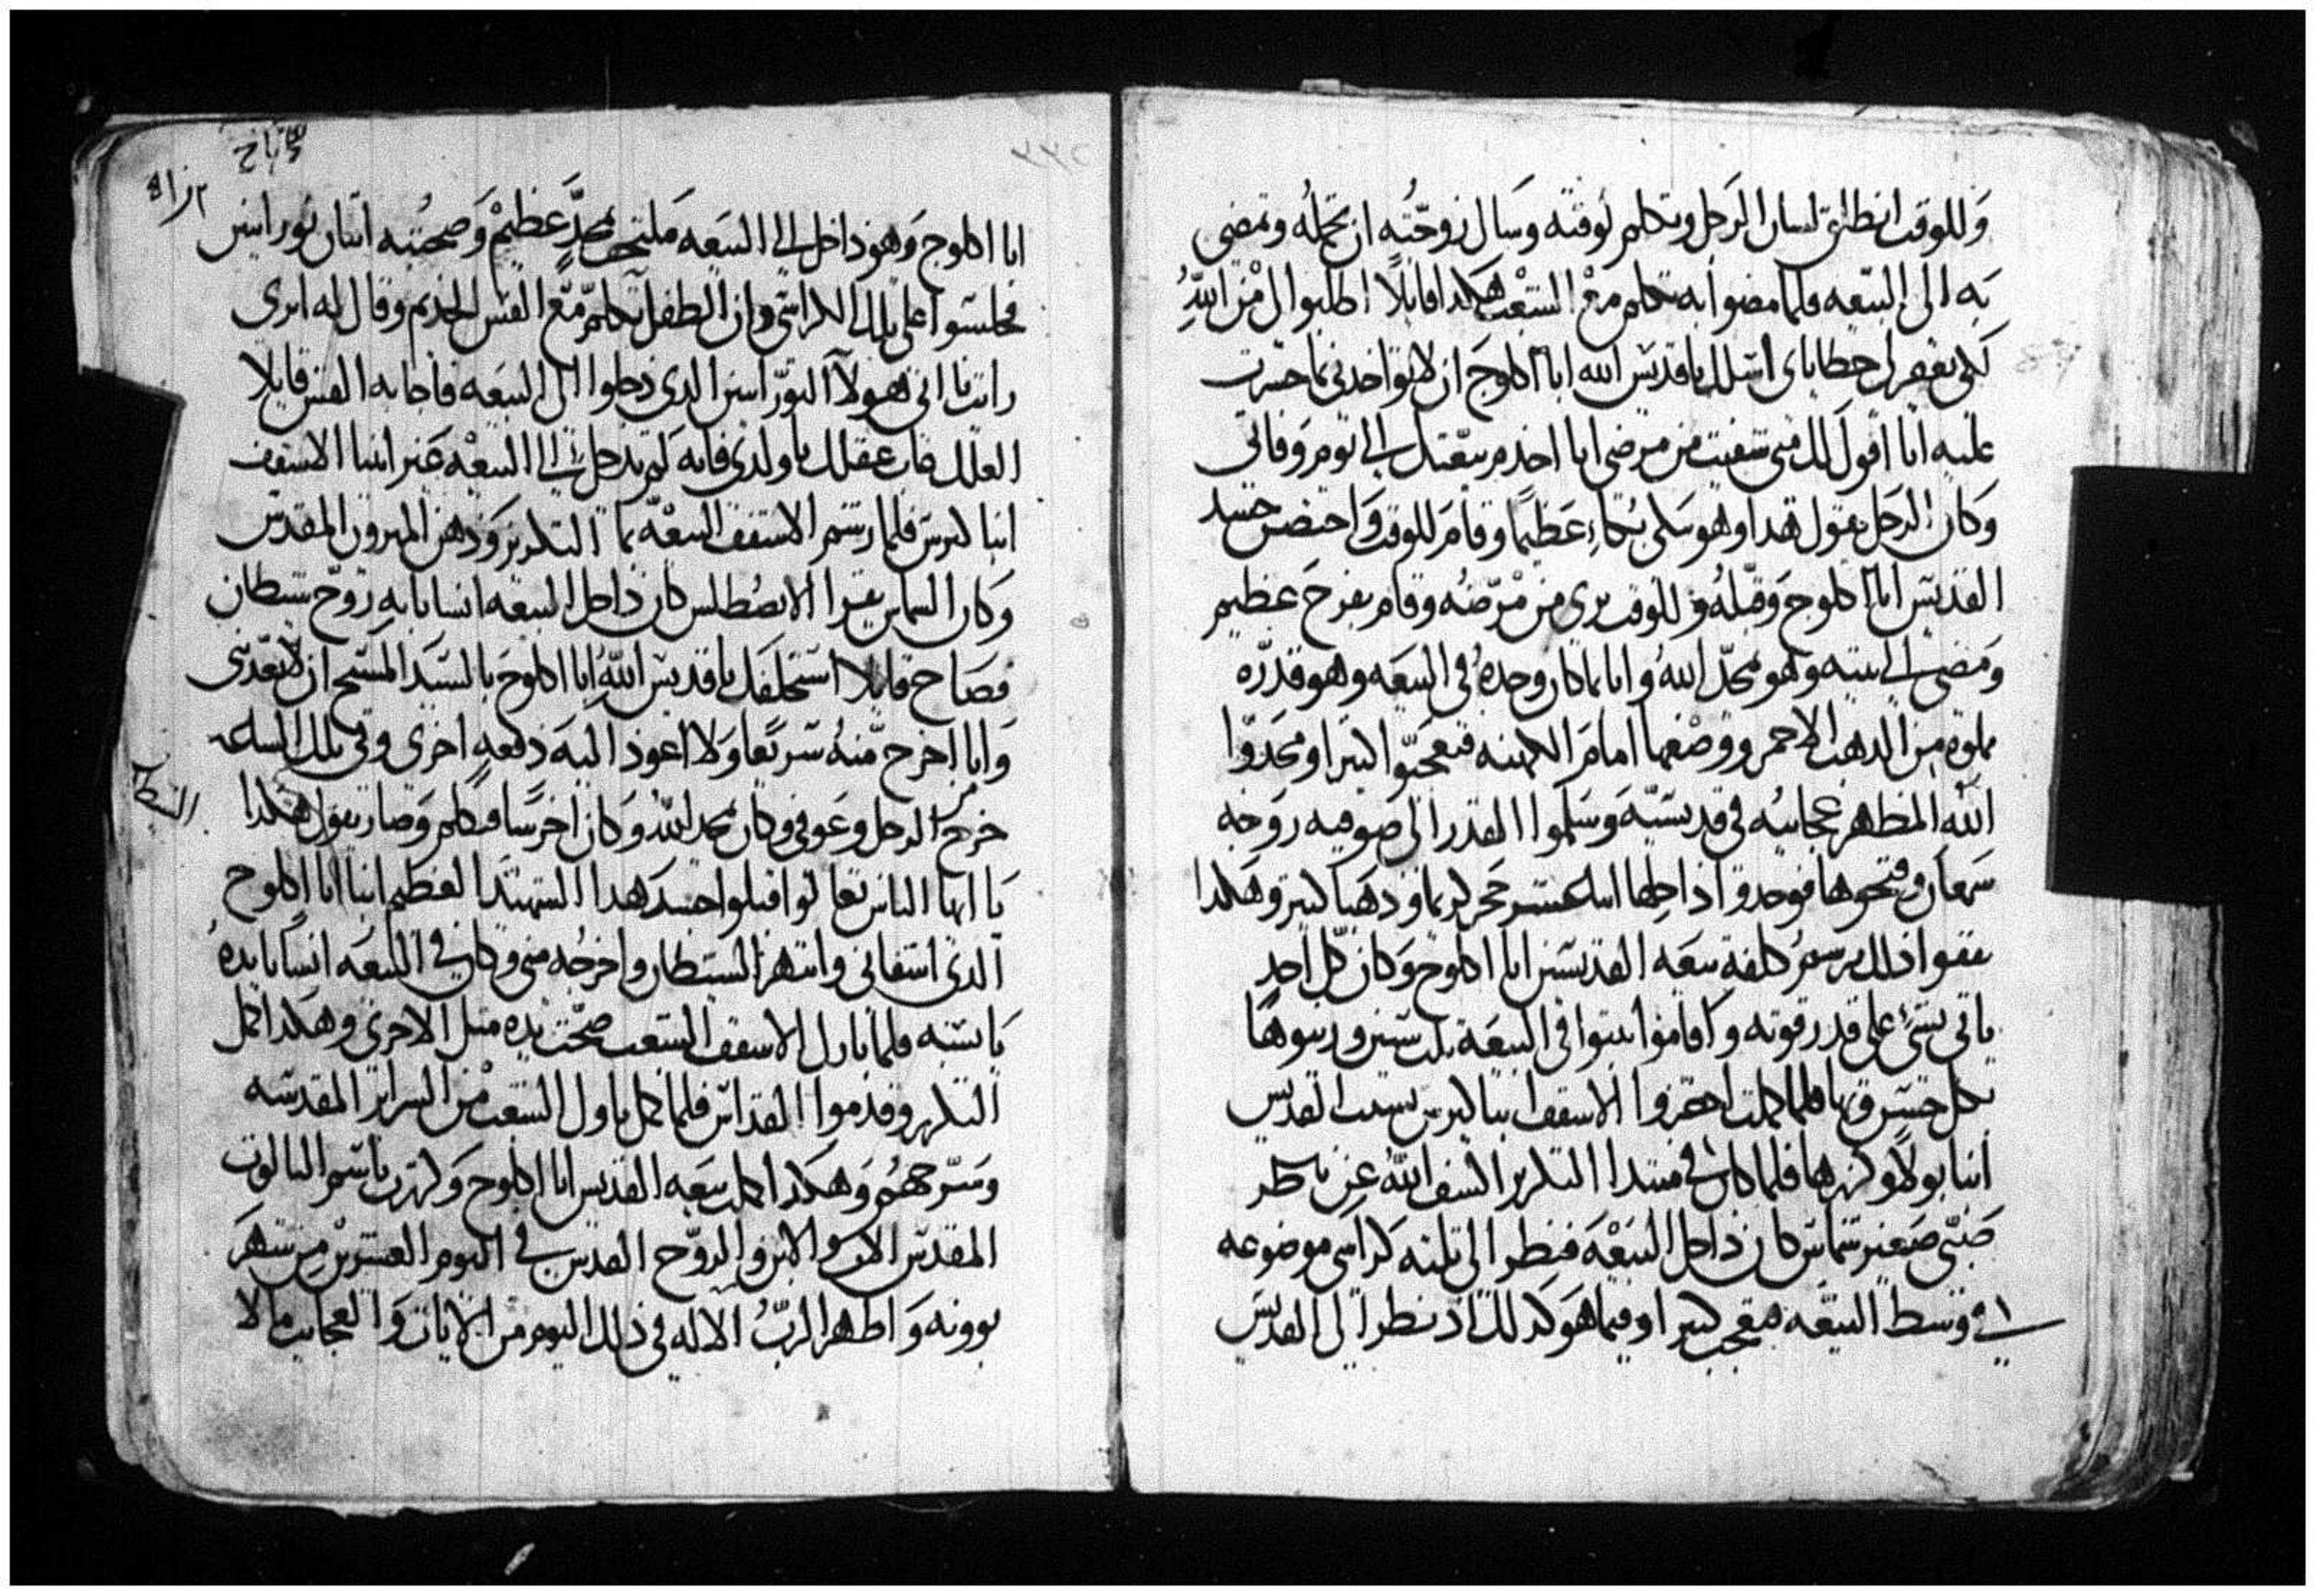 وللوقت انطلق لسان الرجل وتكلم لوقته وسال زوجته ان تحمله وتمضي
به الى البيعه فلما مضوا به تكلم مع الشعب هكدا قايلا اطلبوا لي من الله
لكي يغفر لي خطاياي اسلك ياقديس الله ابا اكلوج ان لا تواخدني بما جسرت
عليه انا اقول لك متى شفيت من مرضي انا اخدم بيعتك الى يوم وفاتي
وكان الرجل يقول هدا وهو يبكي بكاء عظيما وقام للوقت واحتضن جسد
القديس ابا اكلوج وقبله وللوقت بري من مرضه وقام بفرح عظيم
ومضى الى بيته وهو يمجد الله وابا كان وحده في البيعه وهو قدره
مملوه من الدهب الاحمر ووضعها امام الكهنه فتعجبوا كتيرا ومجدوا
الله المظهر عجايبه في قديسيه وسلموا القدر الى صوفيه زوجة
سمعان وفتحوها فوجدوا داخلها اتنا عشر حجر كريما ودهبا كتير وهكدا
نفقوا دلك برسم كلفة بيعه القديس ابا اكلوج وكان كل احد
ياتي بشي على قدر قوته واقاموا يبنوا في البيعة تلت سنين وزينوها
بكل حسن وبها فلما كملت احضروا الاسقف انبا لبرس نسيب القديس
انبا بولا وكرزها فلما كان في مبتدا التكريز اكشف الله عن ناظر
صبي صغير شماس كان داخل البيعة فنظر الى تلته كراسي موضوعه
في وسط البيعه فتعجب كتيرا وفيما هو كدلك اد نظر الى القديس
ابا اكلوج وهو داخل الى البيعه ملتحف بمجد عظيم وصحبته اتنان نورانيين
فجلسوا على تلك الكراسي وان الطفل تكلم مع القس الخديم وقال له اترى
رايت يا ابي هولا النورانيين الدي دخلوا الى البيعه فاجابه القس قايلا
العلك غاب عقلك ياولدي فانه لم يدخل الى البيعه غير ابينا الاسقف
انبا لبرس فلما رشم الاسقف البيعه بما التكريز ودهن الميرون المقدس
وكان الشماس يقرا الابصطلس كان داخل البيعه انسانا به روح شيطان
فصاح قايلا استحلفك ياقديس الله ابا اكلوج بالسيد المسيح ان لا تعدبني
وانا اخرج منه سريعا ولا اعود اليه دفعه اخرى وفي تلك الساعه
خرج من الرجل وعوفي وكان يمجد الله وكان اخرسا فتكلم وصار يقول هكدا
الشيطان
يا ايها الناس تعالوا قبلوا جسد هدا الشهيد العظيم انبا ابا اكلوج
الدي اشفاني وانتهر الشيطان واخرجه مني وكان في البيعه انسانا يده
يابسه فلما بارك الاسقف الشعب صحت يده متل الاخرى وهكدا اكمل
التكريز وقدموا القداس فلما كمل ناول الشعب من السراير المقدسه
وسرحهم وهكدا كملت بيعه القديس ابا اكلوج وكرزت باسم التالوت
المقدس الاب والابن والروح القدس في اليوم العشرين من شهر
بوونه واظهر الرب الاله في دلك اليوم من الايات والعجايب ما لا